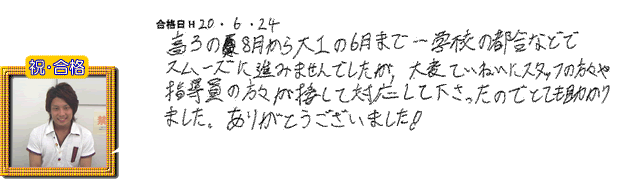 合格日H20・6・24
高3の8月から大1の6月まで…学校の都合などで
スムーズに進みませんでしたが、大変ていねいにスタッフの方々や
指導員の方々が接して対応して下さったのでとても助かり
ました。ありがとうございました!
祝・合格